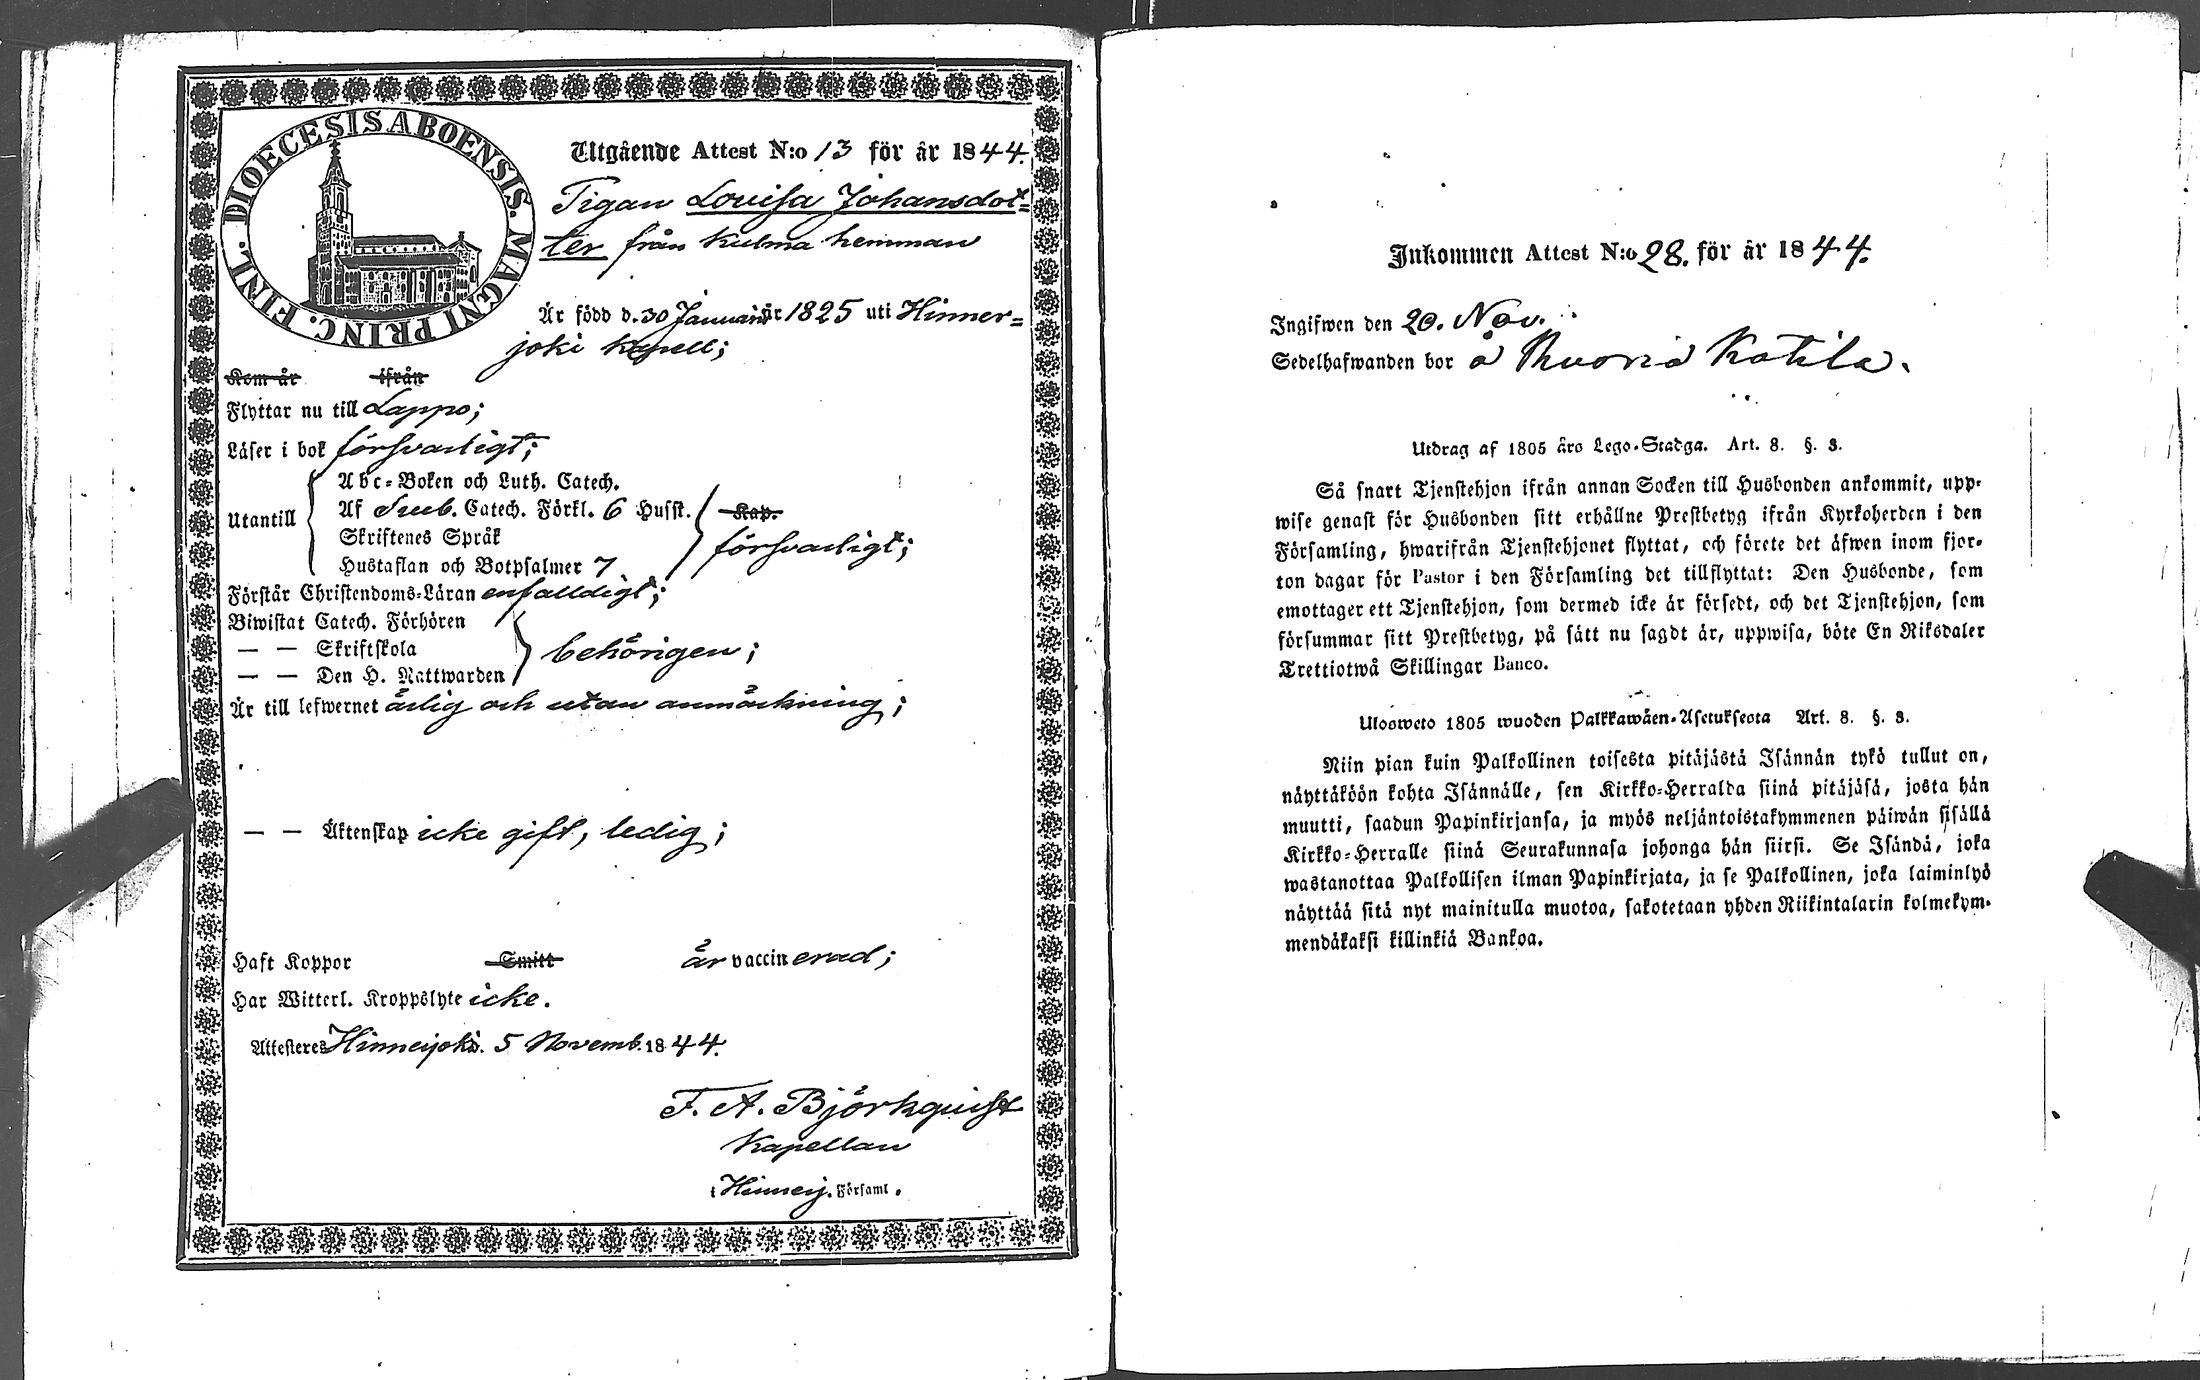 DIOECESIS ABOENSIS. MAGNI PRINC. FINL.
Utgående Attest N:o 13 för år 1844.
Pigan Lovisa Johansdot=
ter från Kulma hemman
Är född d. 30 Januari år 1825 uti Hinner=
joki kapell;
Kom år ifrån
Flyttar nu till Lappo;
Läser i bok försvarligt;
Utantill
Abc-Boken och Luth. Catech.
Af Sveb. Catech. Förkl. 6 Hufst. Kap.
Skriftenes Språk
försvarligt;
Hustaflan och Botpsalmer 7
Förstår Christendoms-Läran enfalldigt;
Biwistat Catech. Förhören
— — Skriftskola
behörigen;
— — Den H. Nattwarden
Är till lefwernet ärlig och utan anmärkning;
— — Äktenskap icke gift, ledig;
Haft Koppor Smitt är vaccinerad;
Har Witterl. Kroppslyte icke.
Attesteres Hinnerjoki d. 5 Novemb. 1844.
F. A. Björkquist
Kapellan
i Hinnerj. Församl.
Inkommen Attest N:o 28. för år 1844.
Ingifwen den 20. Nov.
Sedelhafwanden bor å Katila.
Utdrag af 1805 års Lego-Stadga. Art. 8. §. 3.
Så snart Tjenstehjon ifrån annan Socken till Husbonden ankommit, upp-
wise genast för Husbonden sitt erhållne Prestbetyg ifrån Kyrkoherden i den
Församling, hwarifrån Tjenstehjonet flyttat, och förete det äfwen inom fjor-
ton dagar för Pastor i den Församling det tillflyttat: Den Husbonde, som
emottager ett Tjenstehjon, som dermed icke är försedt, och det Tjenstehjon, som
försummar sitt Prestbetyg, på sätt nu sagdt är, uppwisa, böte En Riksdaler
Trettiotwå Skillingar Banco.
Ulosweto 1805 wuoden Palkkawäen-Asetuksesta Art. 8. §. 3.
Niin pian kuin Palkollinen toisesta pitäjästä Isännän tykö tullut on,
näyttäköön kohta Isännälle, sen Kirkko-Herralda siinä pitäjäsä, josta hän
muutti, saadun Papinkirjansa, ja myös neljäntoistakymmenen päiwän sisällä
Kirkko-Herralle siinä Seurakunnasa johonga hän siirsi. Se Isändä, joka
wastanottaa Palkollisen ilman Papinkirjata, ja se Palkollinen, joka laiminlyö
näyttää sitä nyt mainitulla muotoa, sakotetaan yhden Riikintalarin kolmekym-
mendäkaksi killinkiä Bankoa.